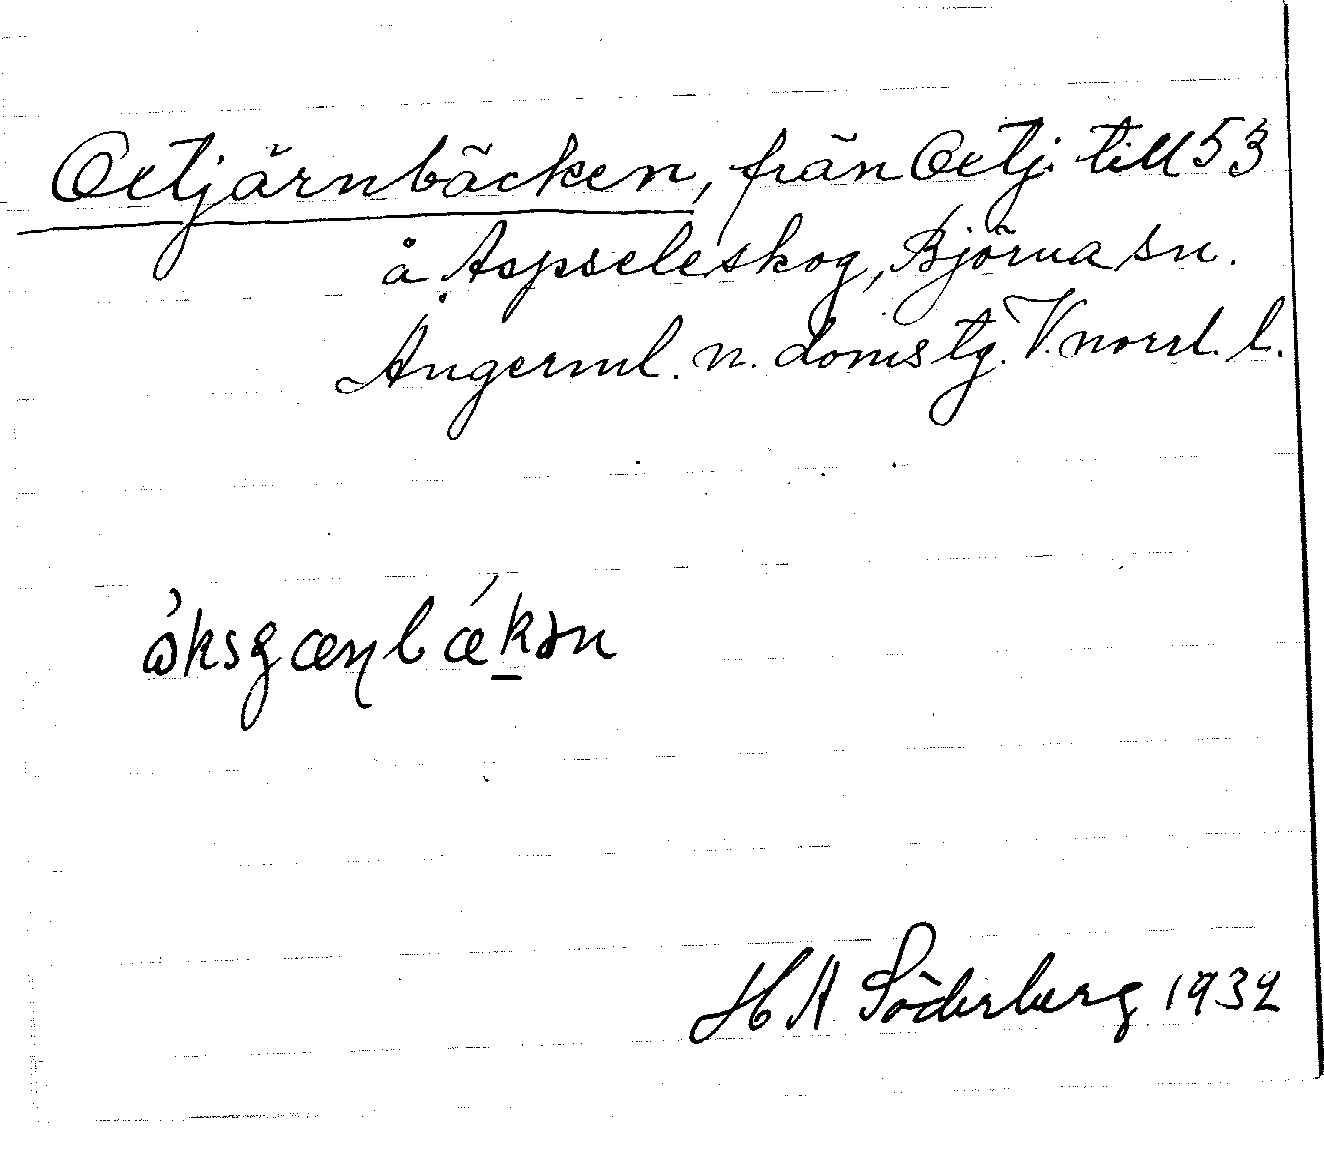 Oxtjärnbäcken, från Oxtj. till 53
å Aspseleskog, Björna sn.
Ångerml. n. domstg. V.norrl. l.
H A Söderberg 1932